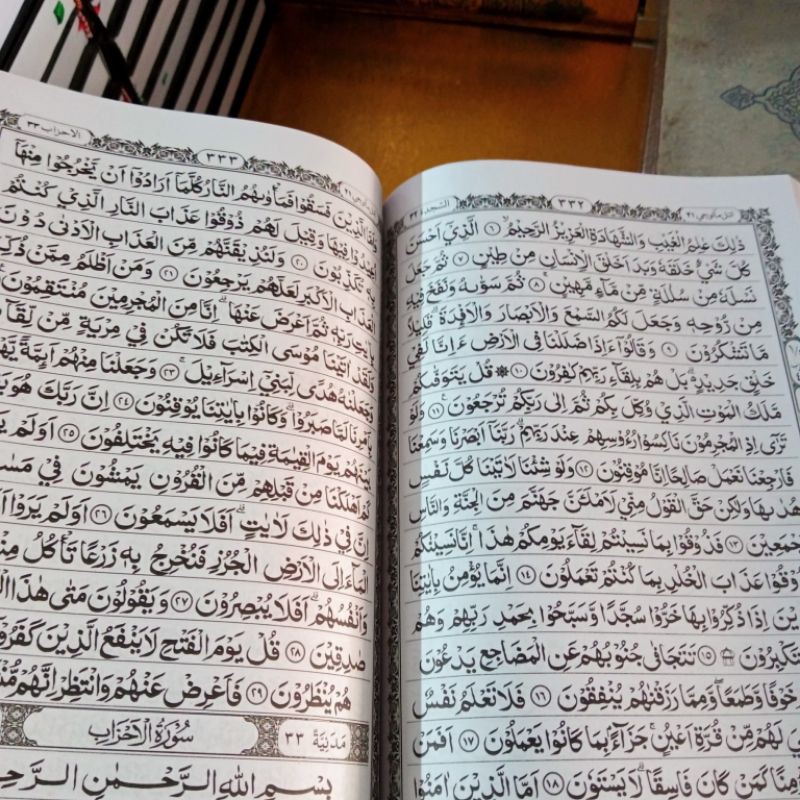 اتل مآاوحي ٢١ ٣٣٢ السجدة ٣٢
ذٰلِكَ عٰلِمُ الْغَيْبِ وَالشَّهَادَةِ الْعَزِيْزُ الرَّحِيْمُۙ ٦ الَّذِيْٓ اَحْسَنَ
كُلَّ شَيْءٍ خَلَقَهٗ وَبَدَاَ خَلْقَ الْاِنْسَانِ مِنْ طِيْنٍ ٧ ثُمَّ جَعَلَ
نَسْلَهٗ مِنْ سُلٰلَةٍ مِّنْ مَّاۤءٍ مَّهِيْنٍ ٨ ثُمَّ سَوّٰىهُ وَنَفَخَ فِيْهِ
مِنْ رُّوْحِهٖ وَجَعَلَ لَكُمُ السَّمْعَ وَالْاَبْصَارَ وَالْاَفْـِٕدَةَۗ قَلِيْلًا
مَّا تَشْكُرُوْنَ ٩ وَقَالُوْٓا ءَاِذَا ضَلَلْنَا فِى الْاَرْضِ ءَاِنَّا لَفِيْ
خَلْقٍ جَدِيْدٍۗ بَلْ هُمْ بِلِقَاۤءِ رَبِّهِمْ كٰفِرُوْنَ ١٠ ۞ قُلْ يَتَوَفّٰىكُمْ
مَّلَكُ الْمَوْتِ الَّذِيْ وُكِّلَ بِكُمْ ثُمَّ اِلٰى رَبِّكُمْ تُرْجَعُوْنَ ١١ وَلَوْ
تَرٰٓى اِذِ الْمُجْرِمُوْنَ نَاكِسُوْا رُءُوْسِهِمْ عِنْدَ رَبِّهِمْۗ رَبَّنَآ اَبْصَرْنَا وَسَمِعْنَا
فَارْجِعْنَا نَعْمَلْ صَالِحًا اِنَّا مُوْقِنُوْنَ ١٢ وَلَوْ شِئْنَا لَاٰتَيْنَا كُلَّ نَفْسٍ
هُدٰىهَا وَلٰكِنْ حَقَّ الْقَوْلُ مِنِّيْ لَاَمْلَـَٔنَّ جَهَنَّمَ مِنَ الْجِنَّةِ وَالنَّاسِ
جْمَعِيْنَ ١٣ فَذُوْقُوْا بِمَا نَسِيْتُمْ لِقَاۤءَ يَوْمِكُمْ هٰذَاۚ اِنَّا نَسِيْنٰكُمْ
وْقُوْا عَذَابَ الْخُلْدِ بِمَا كُنْتُمْ تَعْمَلُوْنَ ١٤ اِنَّمَا يُؤْمِنُ بِاٰيٰتِنَا
يْنَ اِذَا ذُكِّرُوْا بِهَا خَرُّوْا سُجَّدًا وَّسَبَّحُوْا بِحَمْدِ رَبِّهِمْ وَهُمْ
تَكْبِرُوْنَ ١٥ تَتَجَافٰى جُنُوْبُهُمْ عَنِ الْمَضَاجِعِ يَدْعُوْنَ
خَوْفًا وَّطَمَعًا وَّمِمَّا رَزَقْنٰهُمْ يُنْفِقُوْنَ ١٦ فَلَا تَعْلَمُ نَفْسٌ
يَ لَهُمْ مِّنْ قُرَّةِ اَعْيُنٍۚ جَزَاۤءًۢ بِمَا كَانُوْا يَعْمَلُوْنَ ١٧ اَفَمَنْ
مِنًا كَمَنْ كَانَ فَاسِقًاۗ لَا يَسْتَوٗنَ ١٨ اَمَّا الَّذِيْنَ اٰمَنُوْا
٣٣٣ الاحزاب ٣٣
وَاَمَّا الَّذِيْنَ فَسَقُوْا فَمَأْوٰىهُمُ النَّارُ كُلَّمَآ اَرَادُوْٓا اَنْ يَّخْرُجُوْا مِنْهَآ
اُعِيْدُوْا فِيْهَا وَقِيْلَ لَهُمْ ذُوْقُوْا عَذَابَ النَّارِ الَّذِيْ كُنْتُمْ
بِهٖ تُكَذِّبُوْنَ ٢٠ وَلَنُذِيْقَنَّهُمْ مِّنَ الْعَذَابِ الْاَدْنٰى دُوْنَ
الْعَذَابِ الْاَكْبَرِ لَعَلَّهُمْ يَرْجِعُوْنَ ٢١ وَمَنْ اَظْلَمُ مِمَّنْ ذُكِّ
بِاٰيٰتِ رَبِّهٖ ثُمَّ اَعْرَضَ عَنْهَاۗ اِنَّا مِنَ الْمُجْرِمِيْنَ مُنْتَقِمُوْنَ
وَلَقَدْ اٰتَيْنَا مُوْسَى الْكِتٰبَ فَلَا تَكُنْ فِيْ مِرْيَةٍ مِّنْ لِّقَاۤ
وَجَعَلْنٰهُ هُدًى لِّبَنِيْٓ اِسْرَاۤءِيْلَۚ ٢٣ وَجَعَلْنَا مِنْهُمْ اَىِٕمَّةً يَّهْ
بِاَمْرِنَا لَمَّا صَبَرُوْاۗ وَكَانُوْا بِاٰيٰتِنَا يُوْقِنُوْنَ ٢٤ اِنَّ رَبَّكَ هُوَ يَ
بَيْنَهُمْ يَوْمَ الْقِيٰمَةِ فِيْمَا كَانُوْا فِيْهِ يَخْتَلِفُوْنَ ٢٥ اَوَلَمْ يَهْ
كَمْ اَهْلَكْنَا مِنْ قَبْلِهِمْ مِّنَ الْقُرُوْنِ يَمْشُوْنَ فِيْ مَسٰ
اِنَّ فِيْ ذٰلِكَ لَاٰيٰتٍۗ اَفَلَا يَسْمَعُوْنَ ٢٦ اَوَلَمْ يَرَوْا اَ
الْمَاۤءَ اِلَى الْاَرْضِ الْجُرُزِ فَنُخْرِجُ بِهٖ زَرْعًا تَأْكُلُ مِنْ
وَاَنْفُسُهُمْۗ اَفَلَا يُبْصِرُوْنَ ٢٧ وَيَقُوْلُوْنَ مَتٰى هٰذَا الْ
صٰدِقِيْنَ ٢٨ قُلْ يَوْمَ الْفَتْحِ لَا يَنْفَعُ الَّذِيْنَ كَفَرُوْ
هُمْ يُنْظَرُوْنَ ٢٩ فَاَعْرِضْ عَنْهُمْ وَانْتَظِرْ اِنَّهُمْ مُّنْ
مَدَنِيَّة ٣٣ سُوْرَةُ الْاَحْزَابِ
بِسْمِ اللّٰهِ الرَّحْمٰنِ الرَّحِ